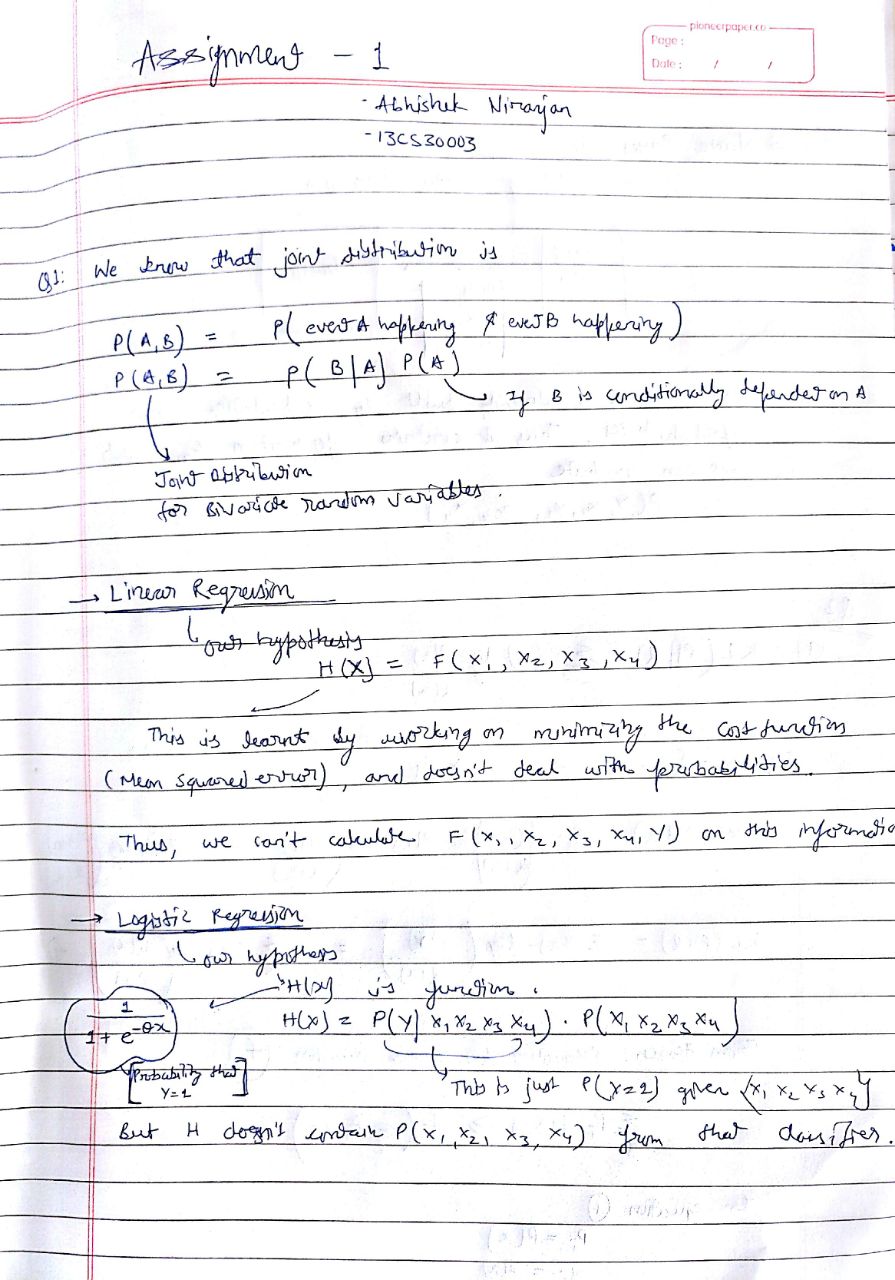 pioneerpaper.co
Page :
Date : / /
Assignment - 1
- Abhishek Niranjan
- 13CS30003
Q1: We know that joint distribution is
P(A,B) = P( event A happening & event B happening )
P(A,B) = P( B|A) P(A)
If B is conditionally dependent on A
Joint distribution
for Bivariate random variables.
→ Linear Regression
our hypothesis
H(X) = F( x1, x2, x3, x4)
This is learnt by working on minimizing the cost function
(Mean squared error), and doesn't deal with probabilities.
Thus, we can't calculate F(x1, x2, x3, x4, Y) on this informatio
→ Logistic Regression
our hypothesis
H(x) is function.
1 / 1 + e^-θx
H(x) = P(Y| x1 x2 x3 x4) . P(x1 x2 x3 x4)
[Probability that Y=1]
This is just P(Y=1) given {x1 x2 x3 x4}
But H doesn't contain P(x1, x2, x3, x4) from that classifier.